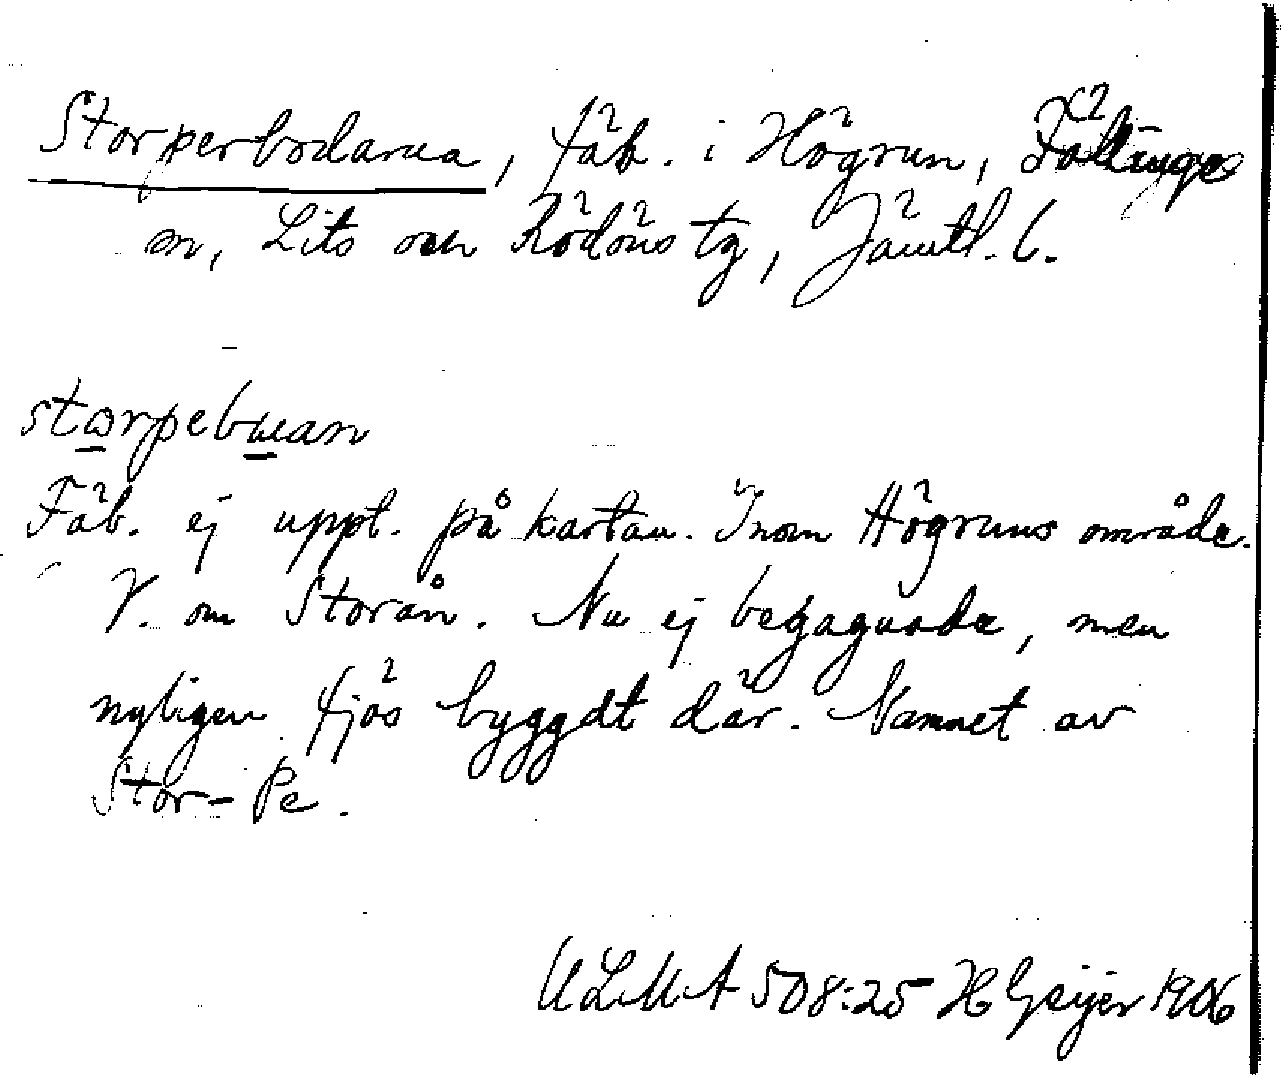 Storperbodarna, fäb. i Högrun, Föllinge
sn, Lits och Rödöns tg, Jämtl. l.
storpebuan
Fäb. ej uppt. på kartan. Inom Högruns område.
V. om Storån. Nu ej begagnade, men
nyligen fjös byggdt där. Namnet av
Stor-Pe.
ULMA 508:25 H Geijer 1906